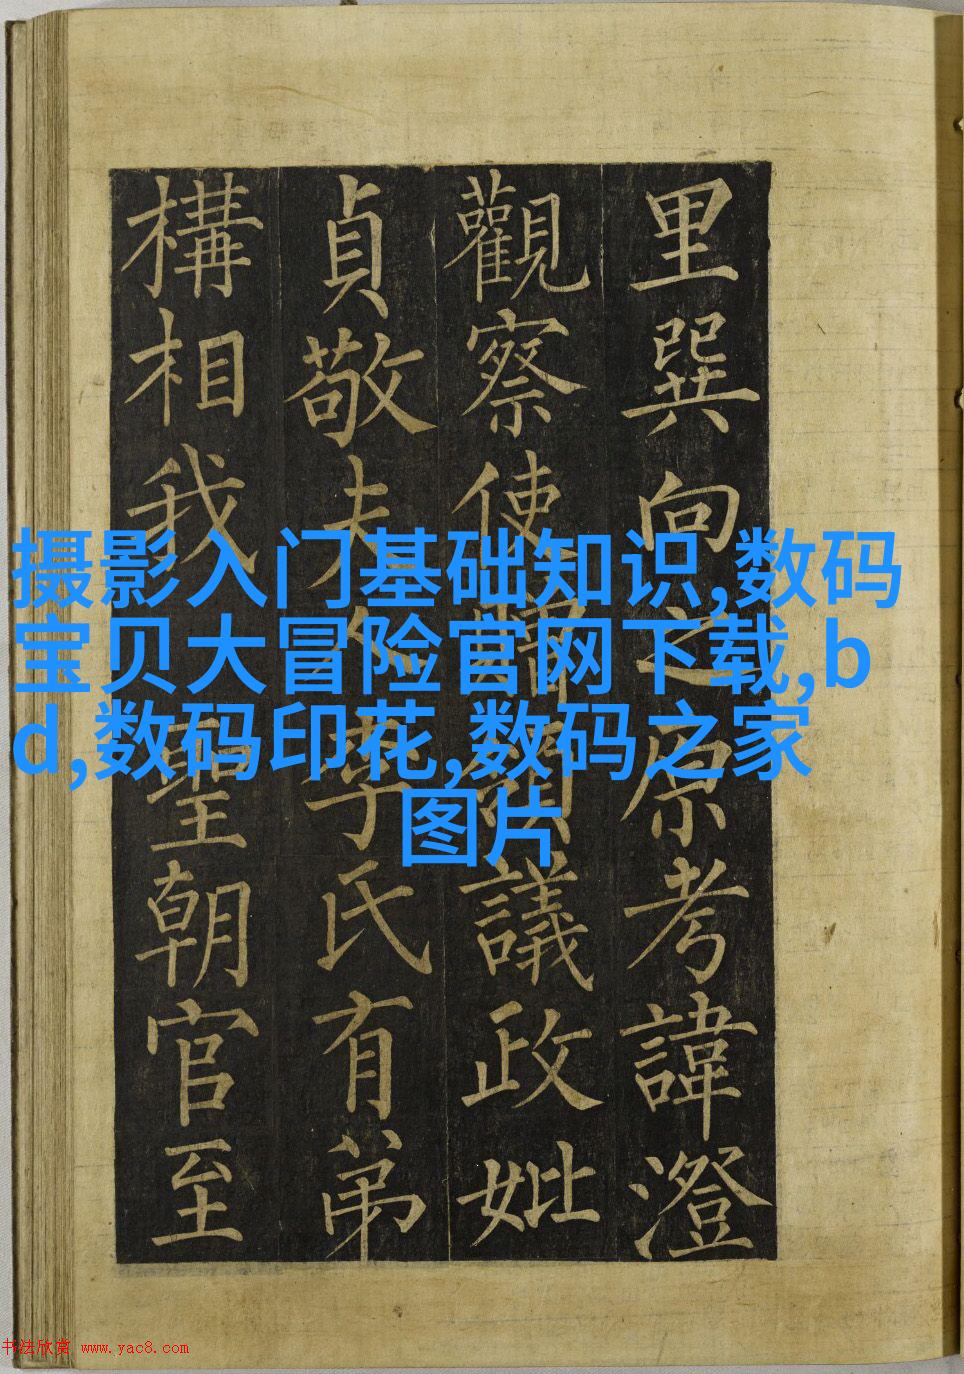 里巽向之原考諱澄
觀察使議政妣
貞敬夫人李氏有弟
構相我聖朝官至
摄影入门基础知识,数码
宝贝大冒险官网下载,b
d,数码印花,数码之家
图片
书法欣赏 www.yac8.com